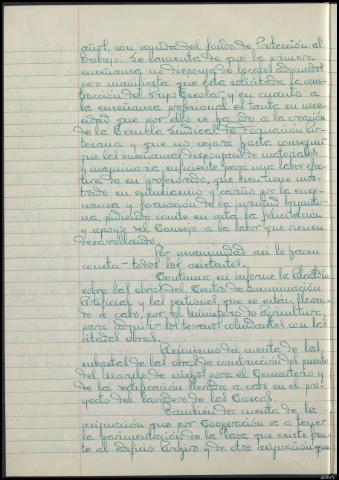 años, con ayuda del fondo de Protección al
trabajo. Se lamenta de que la primera
enseñanza no disponga de locales adecuados
pero manifiesta que está solicitada la cons-
trucción del Grupo Escolar y en cuanto a
la enseñanza profesional es tanta su nece-
sidad que por ello se ha ido a la creación
de la Escuela Sindical de Formación Ar-
tesana y que no cejará hasta conseguir
que las enseñanzas dispongan de materiales
y maquinaria suficiente para una labor efec-
tiva de su profesorado, que bien tiene
en entusiasmo y cariño por la ense-
ñanza y formación de la juventud
pidiendo conste en acta la felicitación
y apoyo del Consejo a la labor que vienen
desarrollando.
Por unanimidad así lo hacen
constar todos los asistentes.
Continua su informe la Alcaldía
sobre las obras del Centro de Inseminación
Artificial y las gestiones que se están llevan-
do a cabo, por el Ministerio de Agricultura,
para adquirir los terrenos colindantes con las
citadas obras.
Asimismo da cuenta de las
subastas de las obras de construcción del puente
del Martillo de nichos para el Cementerio y
de la rectificación llevada a cabo en el pro-
yecto del lavadero de las Cuevas.
También da cuenta de la
asignación que por Cooperación va a tener
la pavimentación de la Plaza que existe fren-
te al edificio Archivo y de otra asignación que